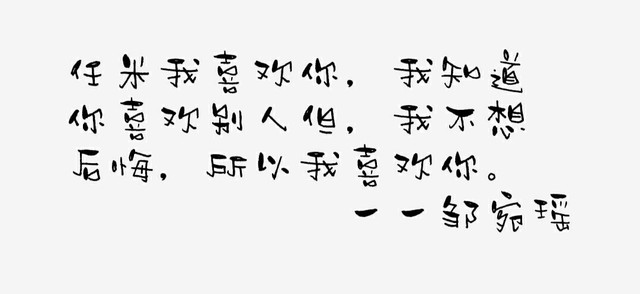 任米我喜欢你，我知道
你喜欢别人但，我不想
后悔，所以我喜欢你。
一一邹宛瑶